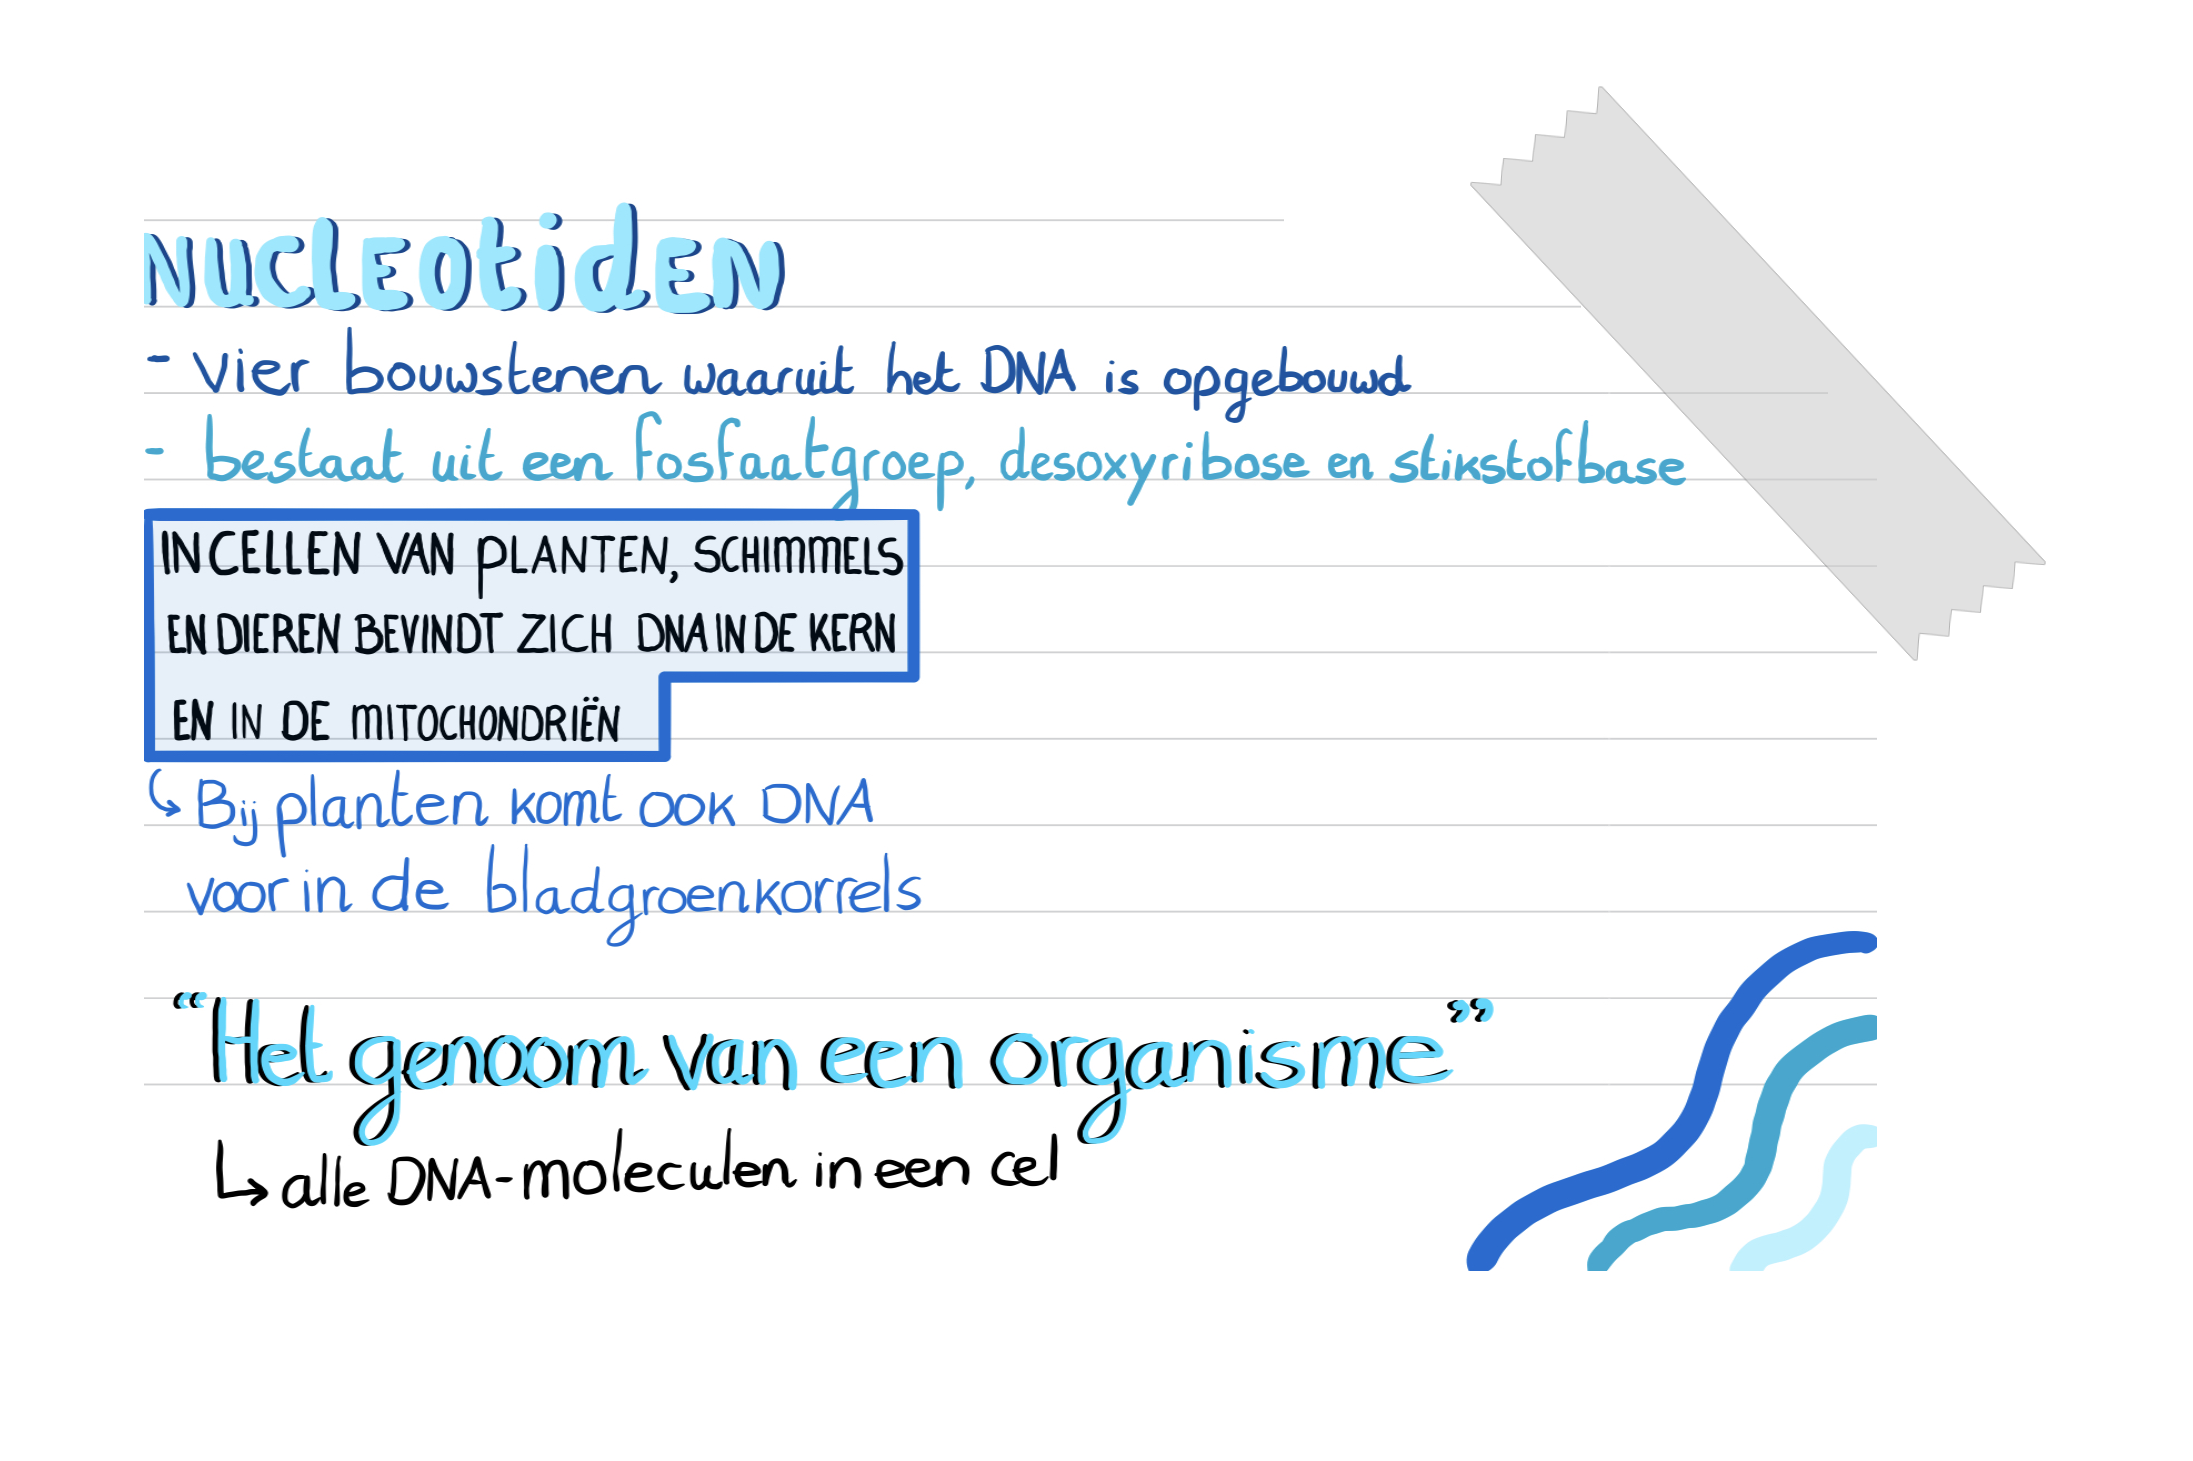 NUCLEOTIDEN
- vier bouwstenen waaruit het DNA is opgebouwd
- bestaat uit een fosfaatgroep, desoxyribose en stikstofbase
IN CELLEN VAN PLANTEN, SCHIMMELS
EN DIEREN BEVINDT ZICH DNA IN DE KERN
EN IN DE MITOCHONDRIËN
↳ Bij planten komt ook DNA
voor in de bladgroenkorrels
“Het genoom van een organisme”
↳ alle DNA-moleculen in een cel